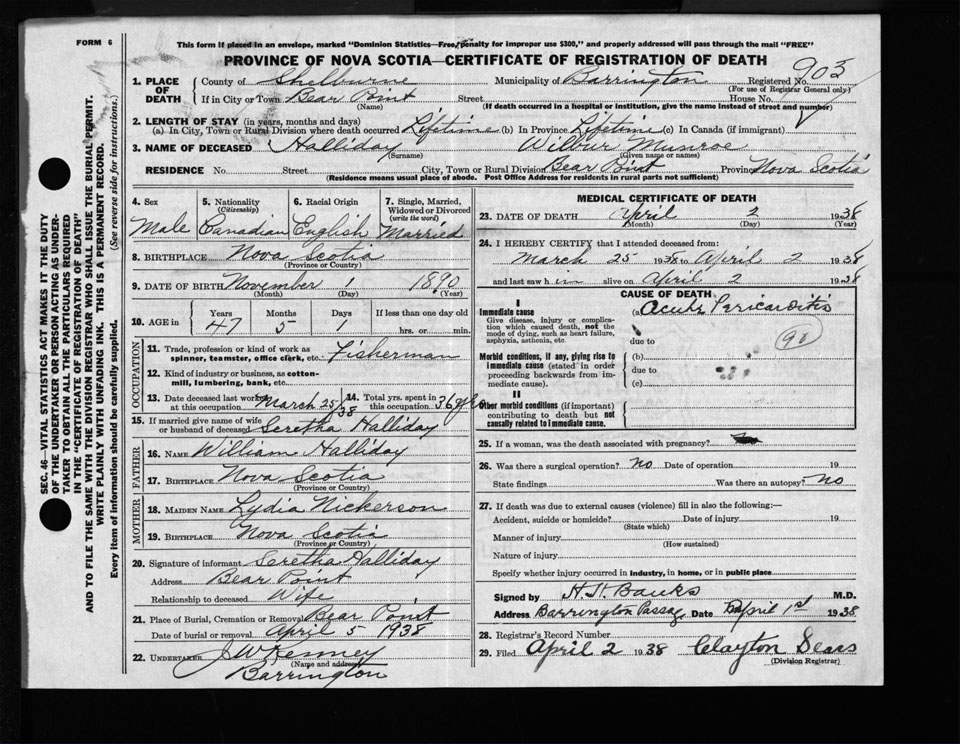 FORM 6
This form if placed in an envelope, marked "Dominion Statistics—Free, penalty for improper use $300," and properly addressed will pass through the mail "FREE"
PROVINCE OF NOVA SCOTIA—CERTIFICATE OF REGISTRATION OF DEATH
903
1. PLACE OF DEATH
County of Shelburne Municipality of Barrington Registered No.
(For use of Registrar General only)
If in City or Town Bear Point Street House No.
(Name) (If death occurred in a hospital or institution, give the name instead of street and number)
2. LENGTH OF STAY (in years, months and days)
(a) In City, Town or Rural Division where death occurred Lifetime (b) In Province Lifetime (c) In Canada (if immigrant)
3. NAME OF DECEASED Halliday Wilbur Munroe
(Surname) (Given name or names)
RESIDENCE No. Street City, Town or Rural Division Bear Point Province Nova Scotia
(Residence means usual place of abode. Post Office Address for residents in rural parts not sufficient)
4. Sex 5. Nationality (Citizenship) 6. Racial Origin 7. Single, Married, Widowed or Divorced (write the word)
Male Canadian English Married
8. BIRTHPLACE Nova Scotia
(Province or Country)
9. DATE OF BIRTH November 1 1890
(Month) (Day) (Year)
10. AGE in Years Months Days If less than one day old
47 5 1 hrs. or min.
OCCUPATION
11. Trade, profession or kind of work as spinner, teamster, office clerk, etc. Fisherman
12. Kind of industry or business, as cotton-mill, lumbering, bank, etc.
13. Date deceased last worked at this occupation March 25/38 14. Total yrs. spent in this occupation 36 yrs
15. If married give name of wife or husband of deceased Seretha Halliday
FATHER
16. NAME William Halliday
17. BIRTHPLACE Nova Scotia
(Province or Country)
MOTHER
18. MAIDEN NAME Lydia Nickerson
19. BIRTHPLACE Nova Scotia
(Province or Country)
20. Signature of informant Seretha Halliday
Address Bear Point
Relationship to deceased Wife
21. Place of Burial, Cremation or Removal Bear Point
Date of burial or removal April 5 1938
22. UNDERTAKER J W Kenney
(Name and address)
Barrington
MEDICAL CERTIFICATE OF DEATH
23. DATE OF DEATH April 2 1938
(Month) (Day) (Year)
24. I HEREBY CERTIFY that I attended deceased from:
March 25 1938 to April 2 1938
and last saw him alive on April 2 1938
CAUSE OF DEATH
I
Immediate cause (a) Acute Pericarditis
Give disease, injury or complication which caused death, not the mode of dying, such as heart failure, asphyxia, asthenia, etc.
due to
90
Morbid conditions, if any, giving rise to immediate cause (stated in order proceeding backwards from immediate cause).
(b)
due to
(c)
II
Other morbid conditions (if important) contributing to death but not causally related to immediate cause.
25. If a woman, was the death associated with pregnancy?
26. Was there a surgical operation? no Date of operation 19
State findings Was there an autopsy? no
27. If death was due to external causes (violence) fill in also the following:—
Accident, suicide or homicide? Date of injury 19
(State which)
Manner of injury
(How sustained)
Nature of injury
Specify whether injury occurred in industry, in home, or in public place
Signed by H. H. Banks M.D.
Address Barrington Passage Date April 1st 1938
28. Registrar's Record Number
29. Filed April 2 1938 Clayton Sears
(Division Registrar)
SEC. 46—VITAL STATISTICS ACT MAKES IT THE DUTY
OF THE UNDERTAKER OR PERSON ACTING AS UNDER-
TAKER TO OBTAIN ALL THE PARTICULARS REQUIRED
IN THE "CERTIFICATE OF REGISTRATION OF DEATH"
AND TO FILE THE SAME WITH THE DIVISION REGISTRAR WHO SHALL ISSUE THE BURIAL PERMIT.
WRITE PLAINLY WITH UNFADING INK. THIS IS A PERMANENT RECORD.
Every item of Information should be carefully supplied. (See reverse side for instructions.)